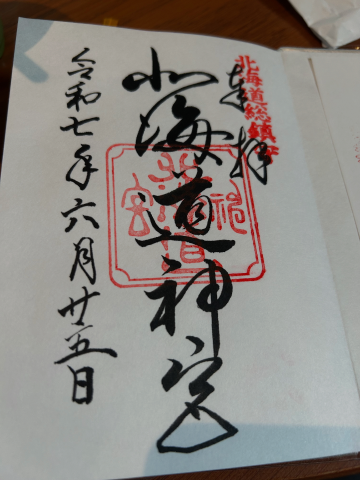 北海道総鎮守
奉拝
北海道神宮
令和七年六月廿五日